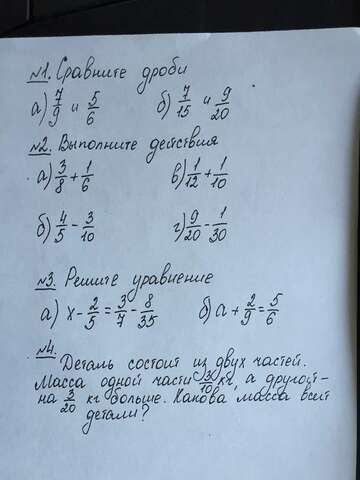 №1. Сравните дроби
а) 7/9 и 5/6 б) 7/15 и 9/20
№2. Выполните действия
а) 3/8 + 1/6 в) 1/12 + 1/10
б) 4/5 - 3/10 г) 9/20 - 1/30
№3. Решите уравнение
а) x - 2/5 = 3/7 - 8/35 б) а + 2/9 = 5/6
№4.
Деталь состоит из двух частей.
Масса одной части 3/10 кг, а другой -
на 3/20 кг больше. Какова масса всей
детали?